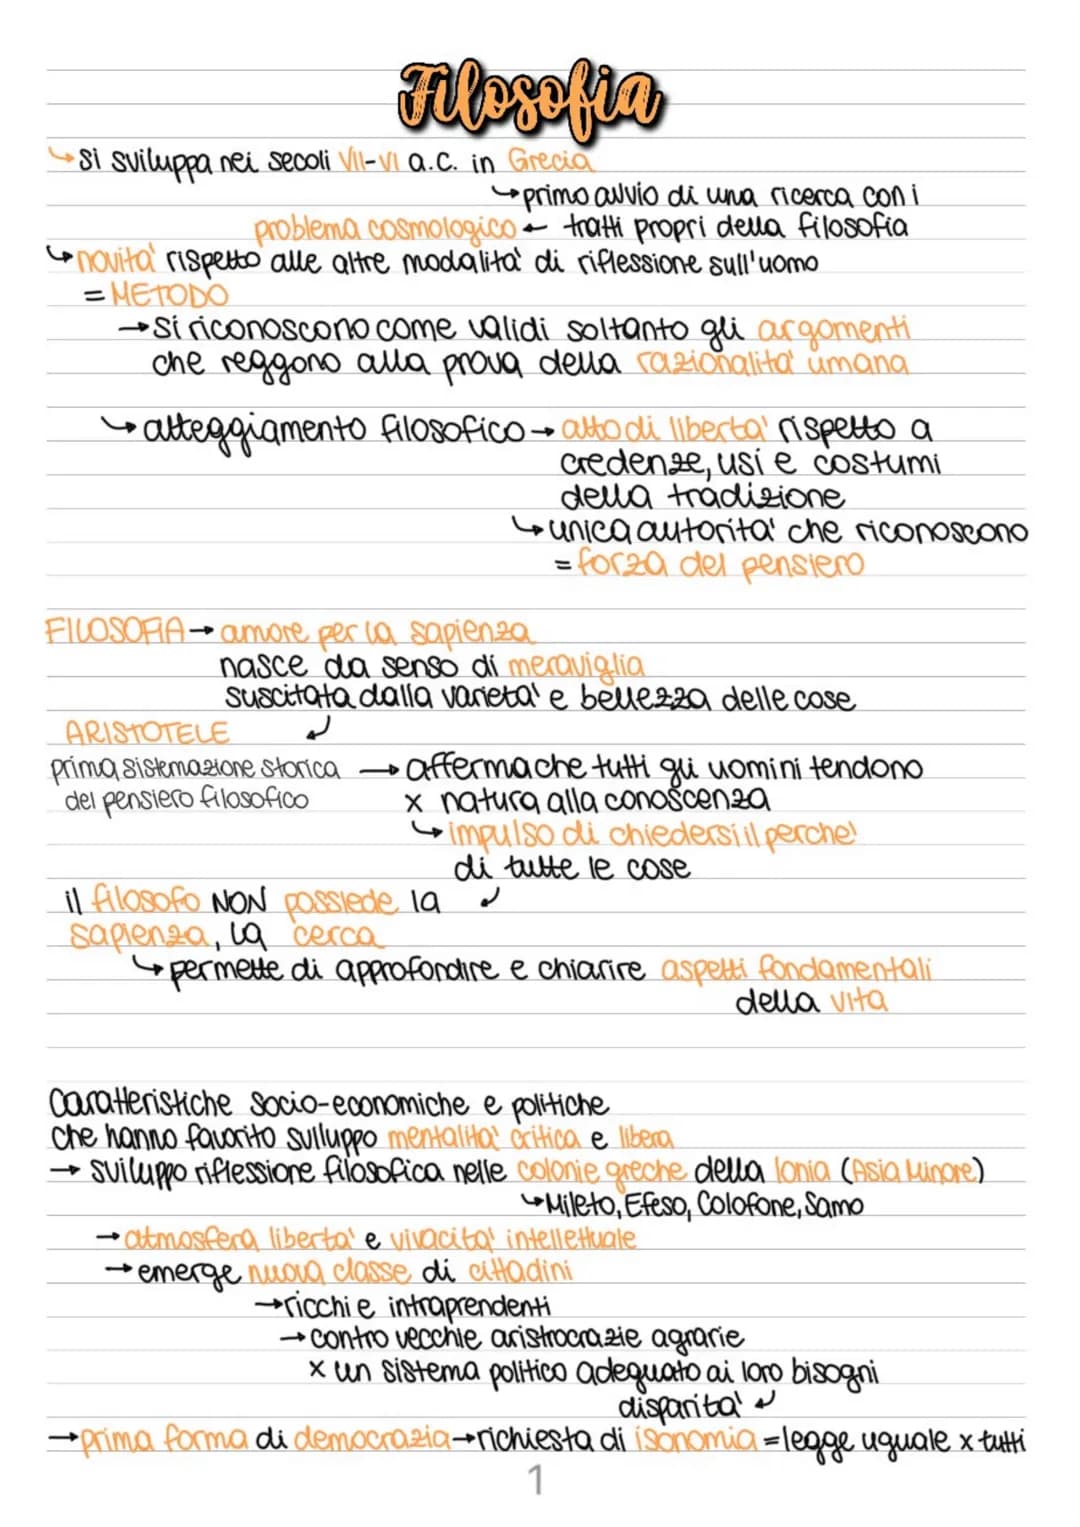 Filosofia
↳ si sviluppa nei secoli VII-VI a.C. in Grecia
↳ primo avvio di una ricerca con i
problema cosmologico ← tratti propri della filosofia
↳ novita' rispetto alle altre modalita' di riflessione sull'uomo
= METODO
→ si riconoscono come validi soltanto gli argomenti
che reggono alla prova della razionalita' umana
↳ atteggiamento filosofico → atto di liberta' rispetto a
credenze, usi e costumi
della tradizione
↳ unica autorita' che riconoscono
= forza del pensiero
FILOSOFIA → amore per la sapienza
nasce da senso di meraviglia
suscitata dalla varieta' e bellezza delle cose
ARISTOTELE ↙
prima sistemazione storica → afferma che tutti gli uomini tendono
del pensiero filosofico x natura alla conoscenza
↳ impulso di chiedersi il perche'
di tutte le cose
il filosofo NON possiede la ↙
sapienza, la cerca
↳ permette di approfondire e chiarire aspetti fondamentali
della vita
Caratteristiche socio-economiche e politiche
che hanno favorito sviluppo mentalita' critica e libera
→ sviluppo riflessione filosofica nelle colonie greche della Ionia (Asia Minore)
↳ Mileto, Efeso, Colofone, Samo
→ atmosfera liberta' e vivacita' intellettuale
→ emerge nuova classe di cittadini
→ ricchi e intraprendenti
→ contro vecchie aristrocrazie agrarie
x un sistema politico adeguato ai loro bisogni
disparita' ↙
→ prima forma di democrazia → richiesta di isonomia = legge uguale x tutti
1